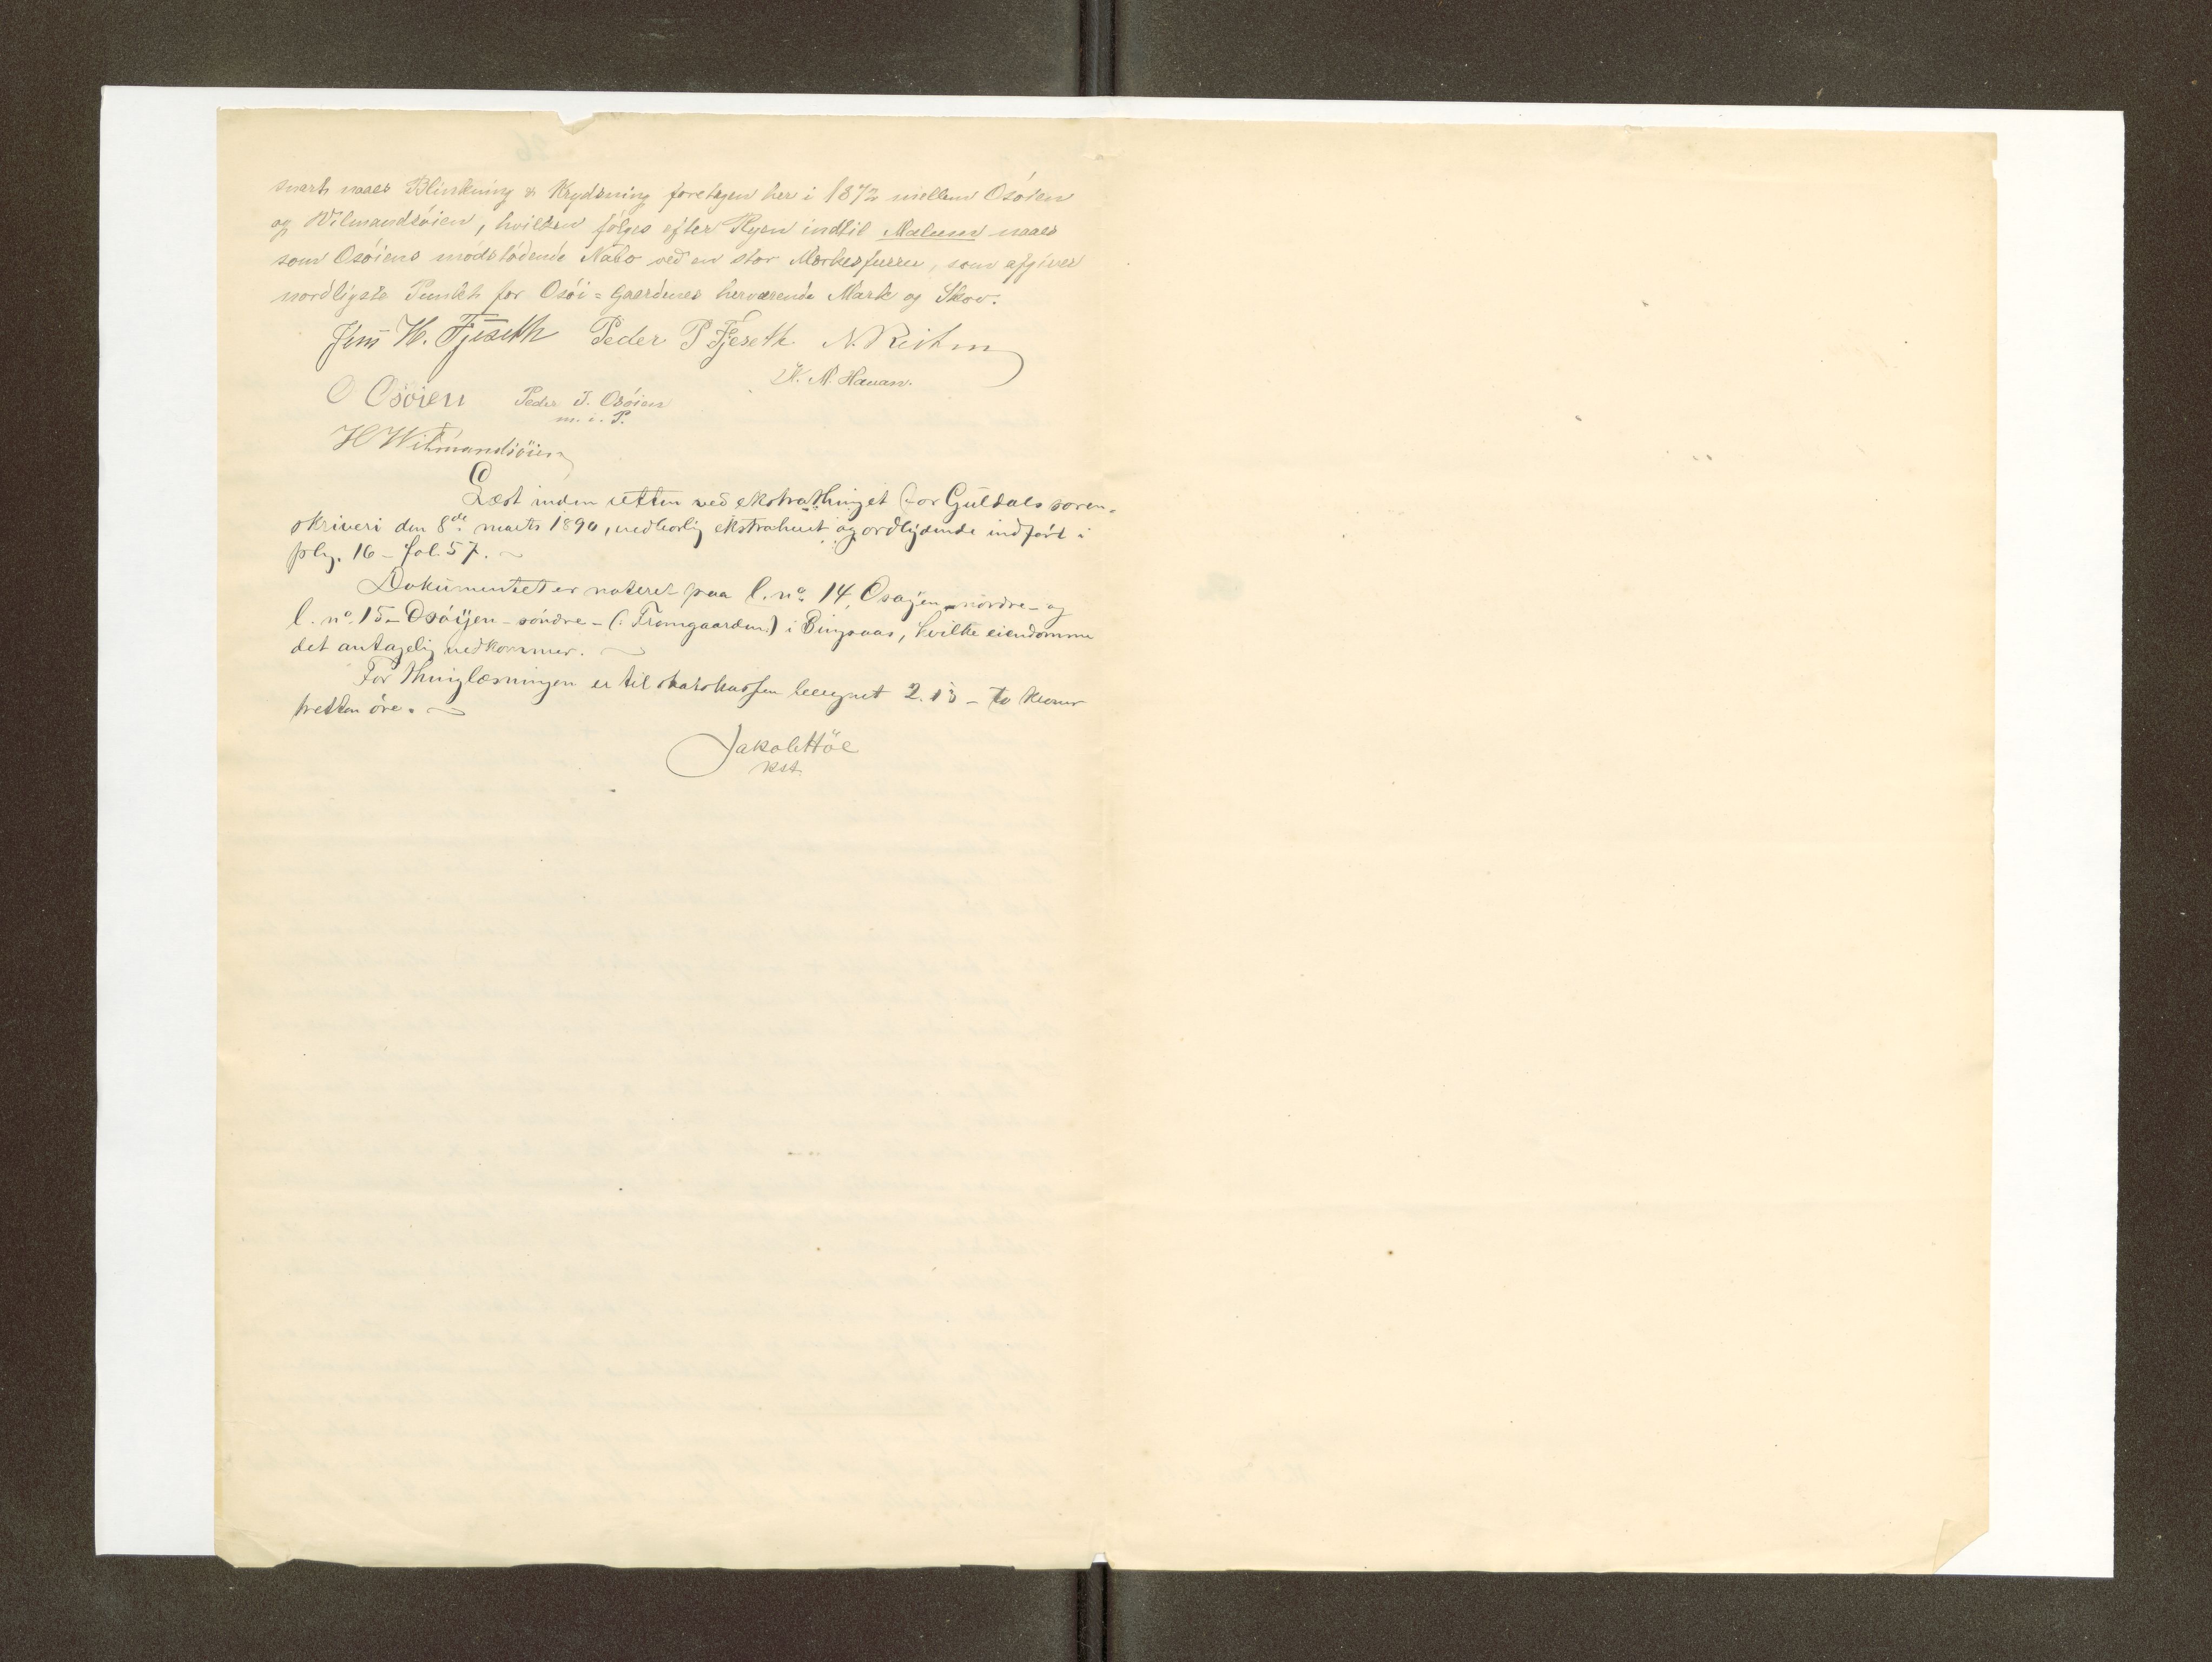 snart naaes Blinkning & Krydsning foretagen her i 1872 mellem Osöien
og Wilmandsöien, hvilken følges efter Ryen indtil Mælum naaes
som Osöiens mødstødende Nabo ved en stor Mærkesfurru, som afgiver
nordligste Punkt for Osöi=gaardenes herværende Mark og Skov.
H. Fjeseth Peder P Fjeseth N.
O Osöien Peder J. Osöien
m. i. P.
H Wilmandsöien
Læst inden retten ved ekstrathinget for Guldals soren-
skriveri den 8de marts 1890, vedborlig ekstraheret og ordlydende indført i
ptb. 16 - fol. 57.
Dokumentet er noteret paa l. no. 14, Osøyen nordre - og
l. no. 15 - Osöyen - söndre - (: Framgaarden:) i Singsaas, hvilke eiendomme
det antagelig vedkommer.
For thinglæsningen er til statskassen beregnet 2.13 - to kroner
tretten öre.
Jakob Höe
kst.